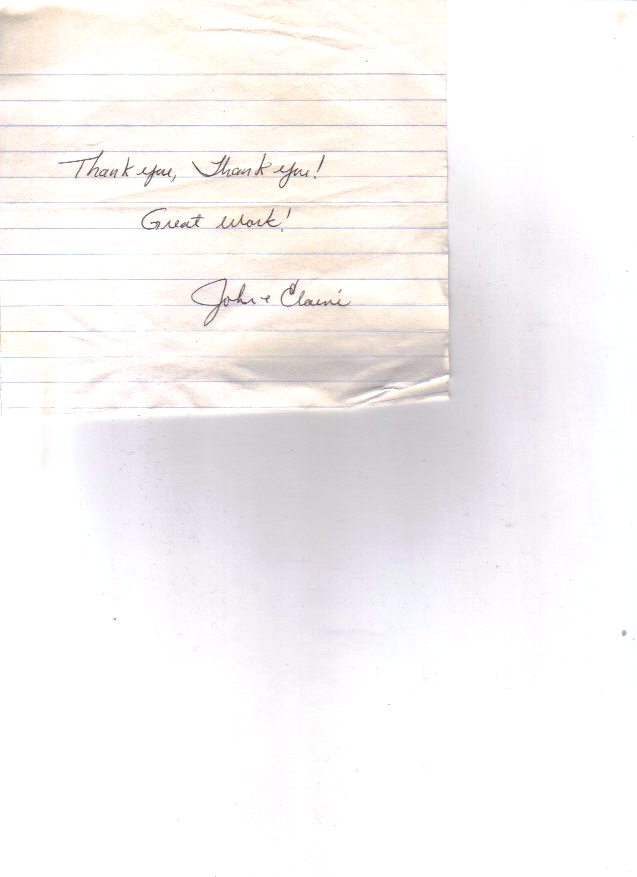 Thank you, Thank you!
Great work!
John + Elaine